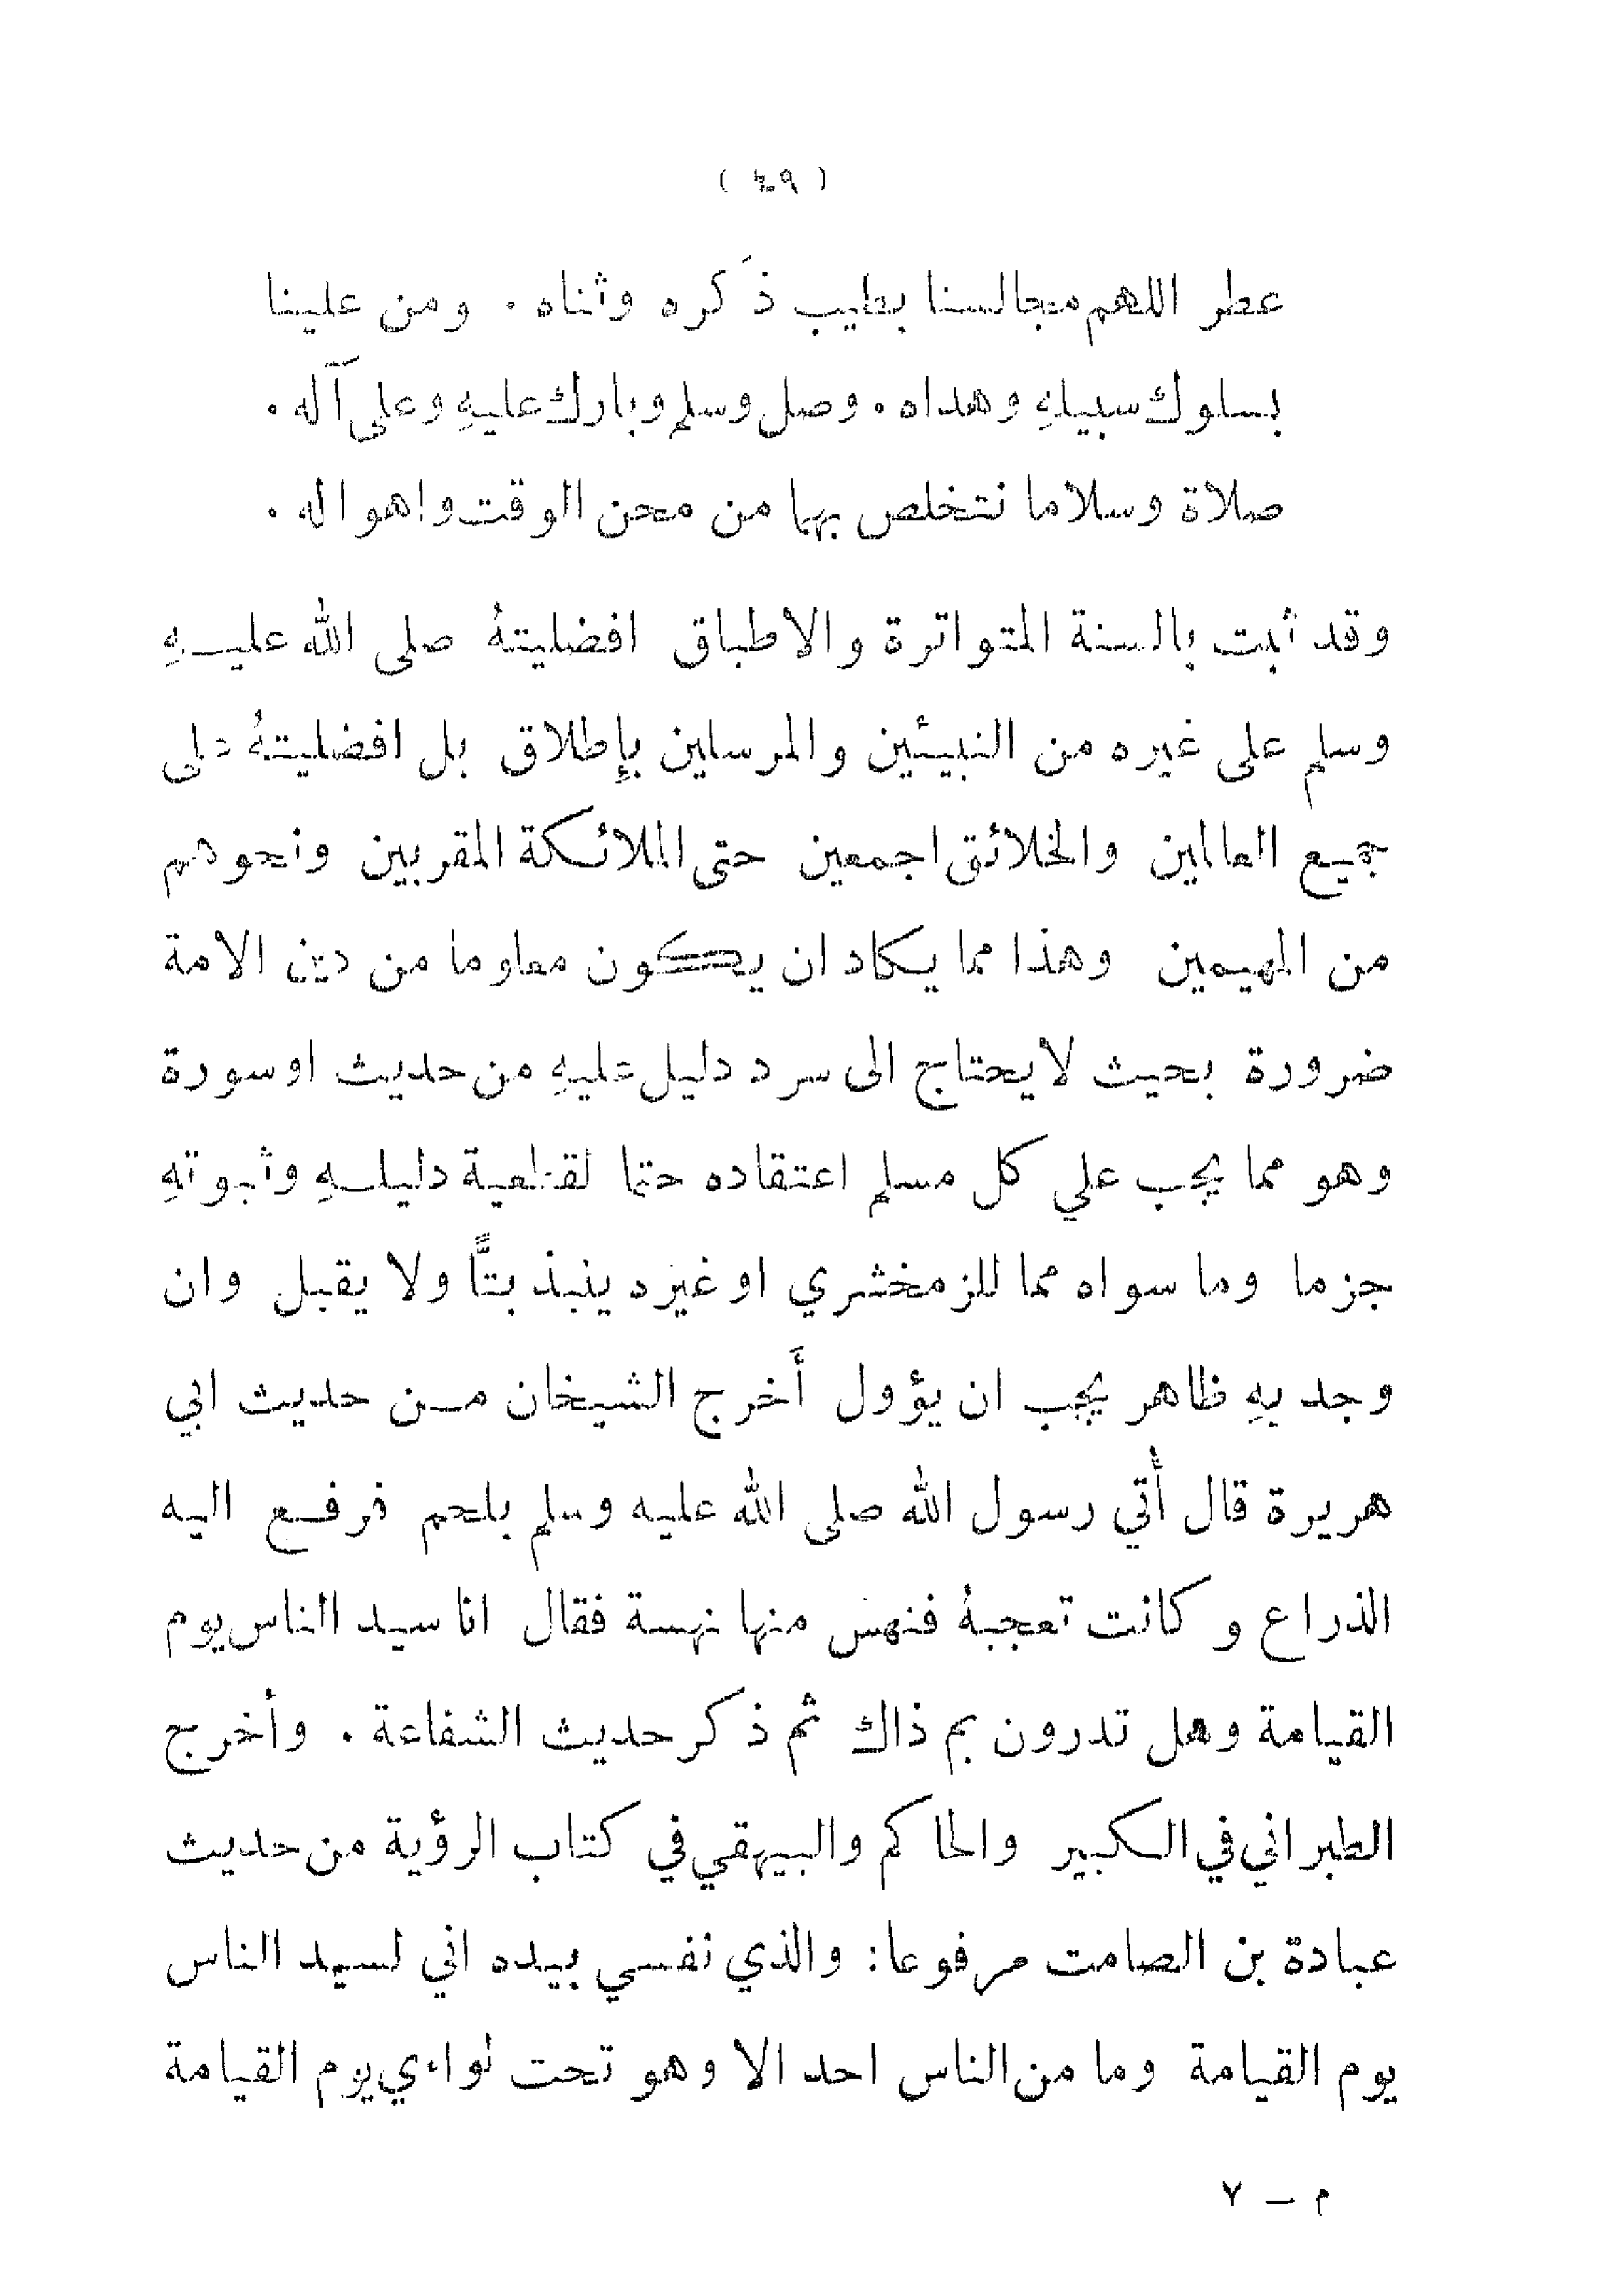 ( ٤٩ )
عطر اللهم مجالسنا بطيب ذَكره وثناه . ومن علينا
بسلوك سبيلهِ وهداه . وصل وسلم وبارك عليهِ وعلى آله .
صلاة وسلاما نتخلص بهما من محن الوقت واهواله .
وقد ثبت بالسنة المتواترة والاطباق افضليتهُ صلى الله عليهِ
وسلم على غيره من النبيئين والمرسلين بإطلاق بل افضليتهُ على
جميع العالمين والخلائق اجمعين حتى الملائكة المقربين ونحوهم
من المهيمين وهذا مما يكاد ان يكون معلوما من دين الامة
ضرورة بحيث لا يحتاج الى سرد دليل عليهِ من حديث او سورة
وهو مما يجب علي كل مسلم اعتقاده حتما لقطعية دليلهِ وثبوتهِ
جزما وما سواه مما للزمخشري او غيره ينبذ بتًّا ولا يقبل وان
وجد بهِ ظاهر يجب ان يؤول أَخرج الشيخان من حديث ابي
هريرة قال أُتي رسول الله صلى الله عليه وسلم بلحم فرفع اليه
الذراع وكانت تعجبهُ فنهس منها نهسة فقال انا سيد الناس يوم
القيامة وهل تدرون بم ذاك ثم ذكر حديث الشفاعة . وأخرج
الطبراني في الكبير والحاكم والبيهقي في كتاب الرؤية من حديث
عبادة بن الصامت مرفوعا : والذي نفسي بيده اني لسيد الناس
يوم القيامة وما من الناس احد الا وهو تحت لواءي يوم القيامة
م – ٧